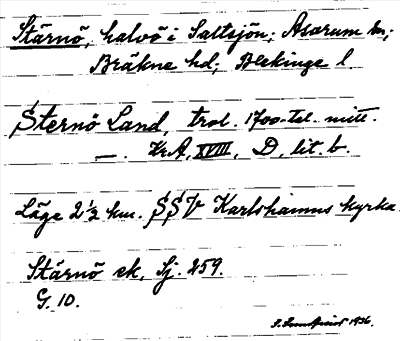 Stärnö, halvö i Saltsjön; Asarum sn;
Bräkne hd; Blekinge l.
Sternö Land, trol. 1700-tal. mitt.
—. Kr.A, XVIII, D, lit. b.
Läge 2½ km. SSV Karlshamns kyrka.
Stärnö ek, Sj. 259.
G. 10.
1936.